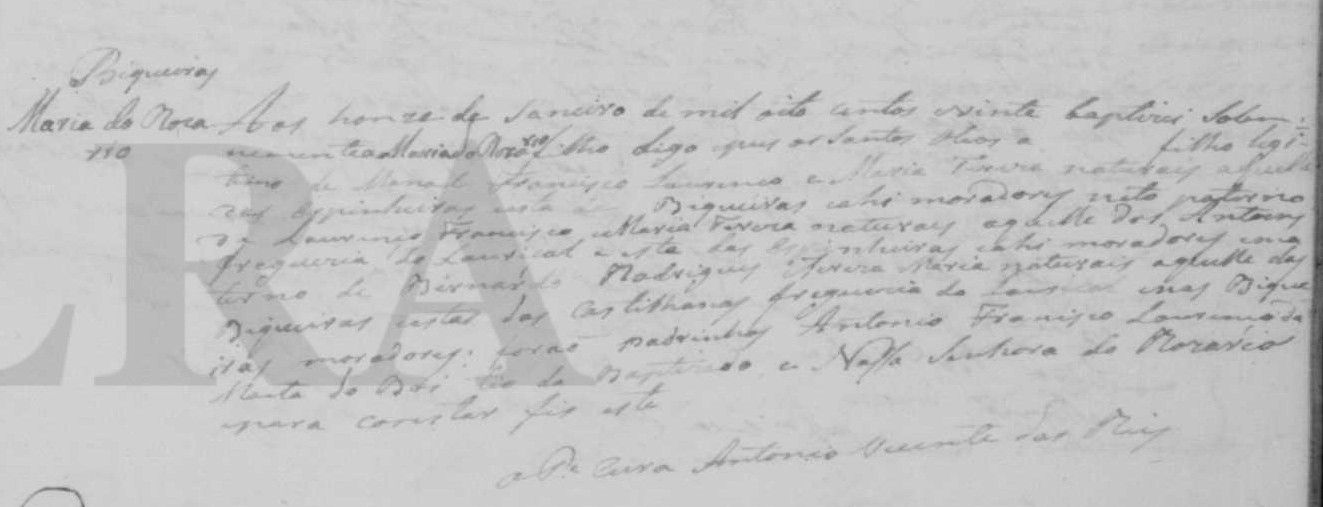 Biqueiras
Maria do Roza Aos honze de Janeiro de mil oito centos e vinte baptizei Solem:
rio nemente a Maria do Rozario filho digo e pus os Santos Olios a filho legi-
timo de Manoel Francisco Laurenco e Maria naturais aquelle
das Espinheiras esta de Biqueiras e ahi moradores neto paterno
de Laurenco Francisco e Maria naturais aquelle dos Antoins
freguezia do Lourical e esta das Espinheiras e ahi moradores e ma
terno de Bernardo Rodrigues Maria naturais aquelle das
Biqueiras esta das Castilhanas freguezia do e nas Bique
iras moradores: forao padrinhos Antonio Francisco Laurenco da
Mata do tio do Baptizado, e Nossa Senhora do Rozario
e para constar fis este
o Pe Cura Antonio Vicente dos Reis
ERA